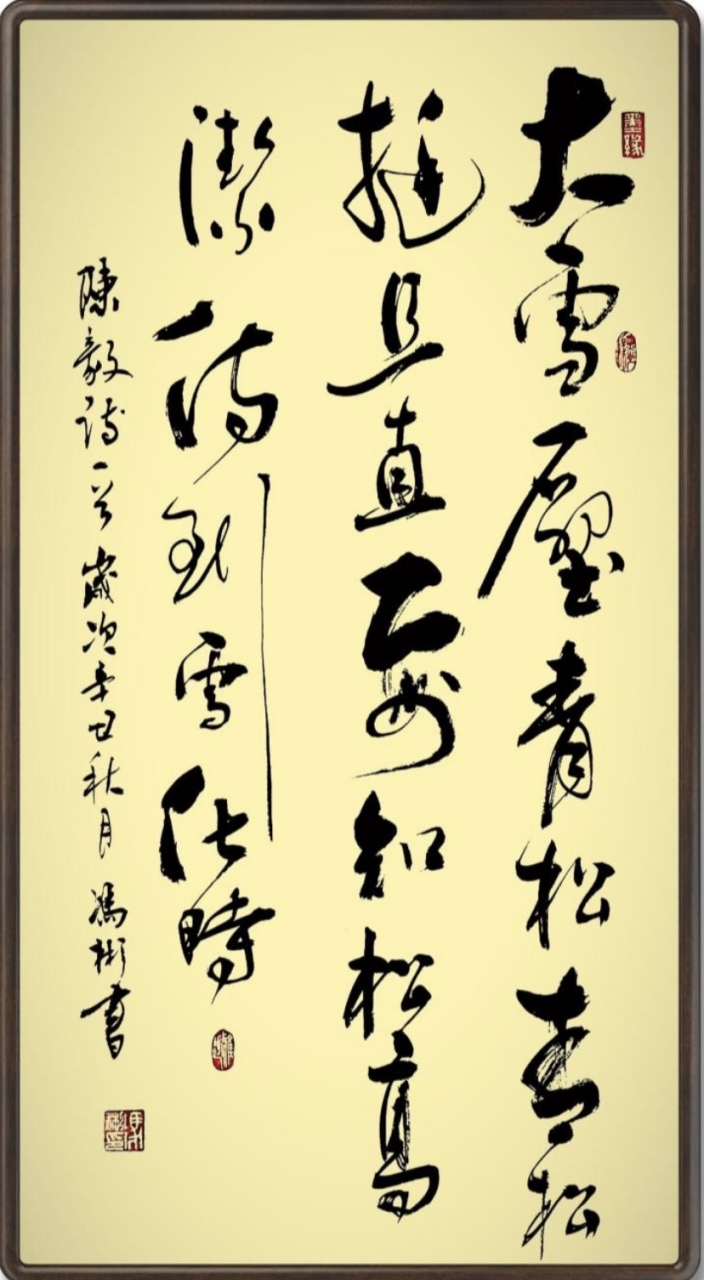 大雪壓青松青松
挺且直要知松高
潔待到雪化時
陳毅詩一首歲次辛丑秋月馮彬書